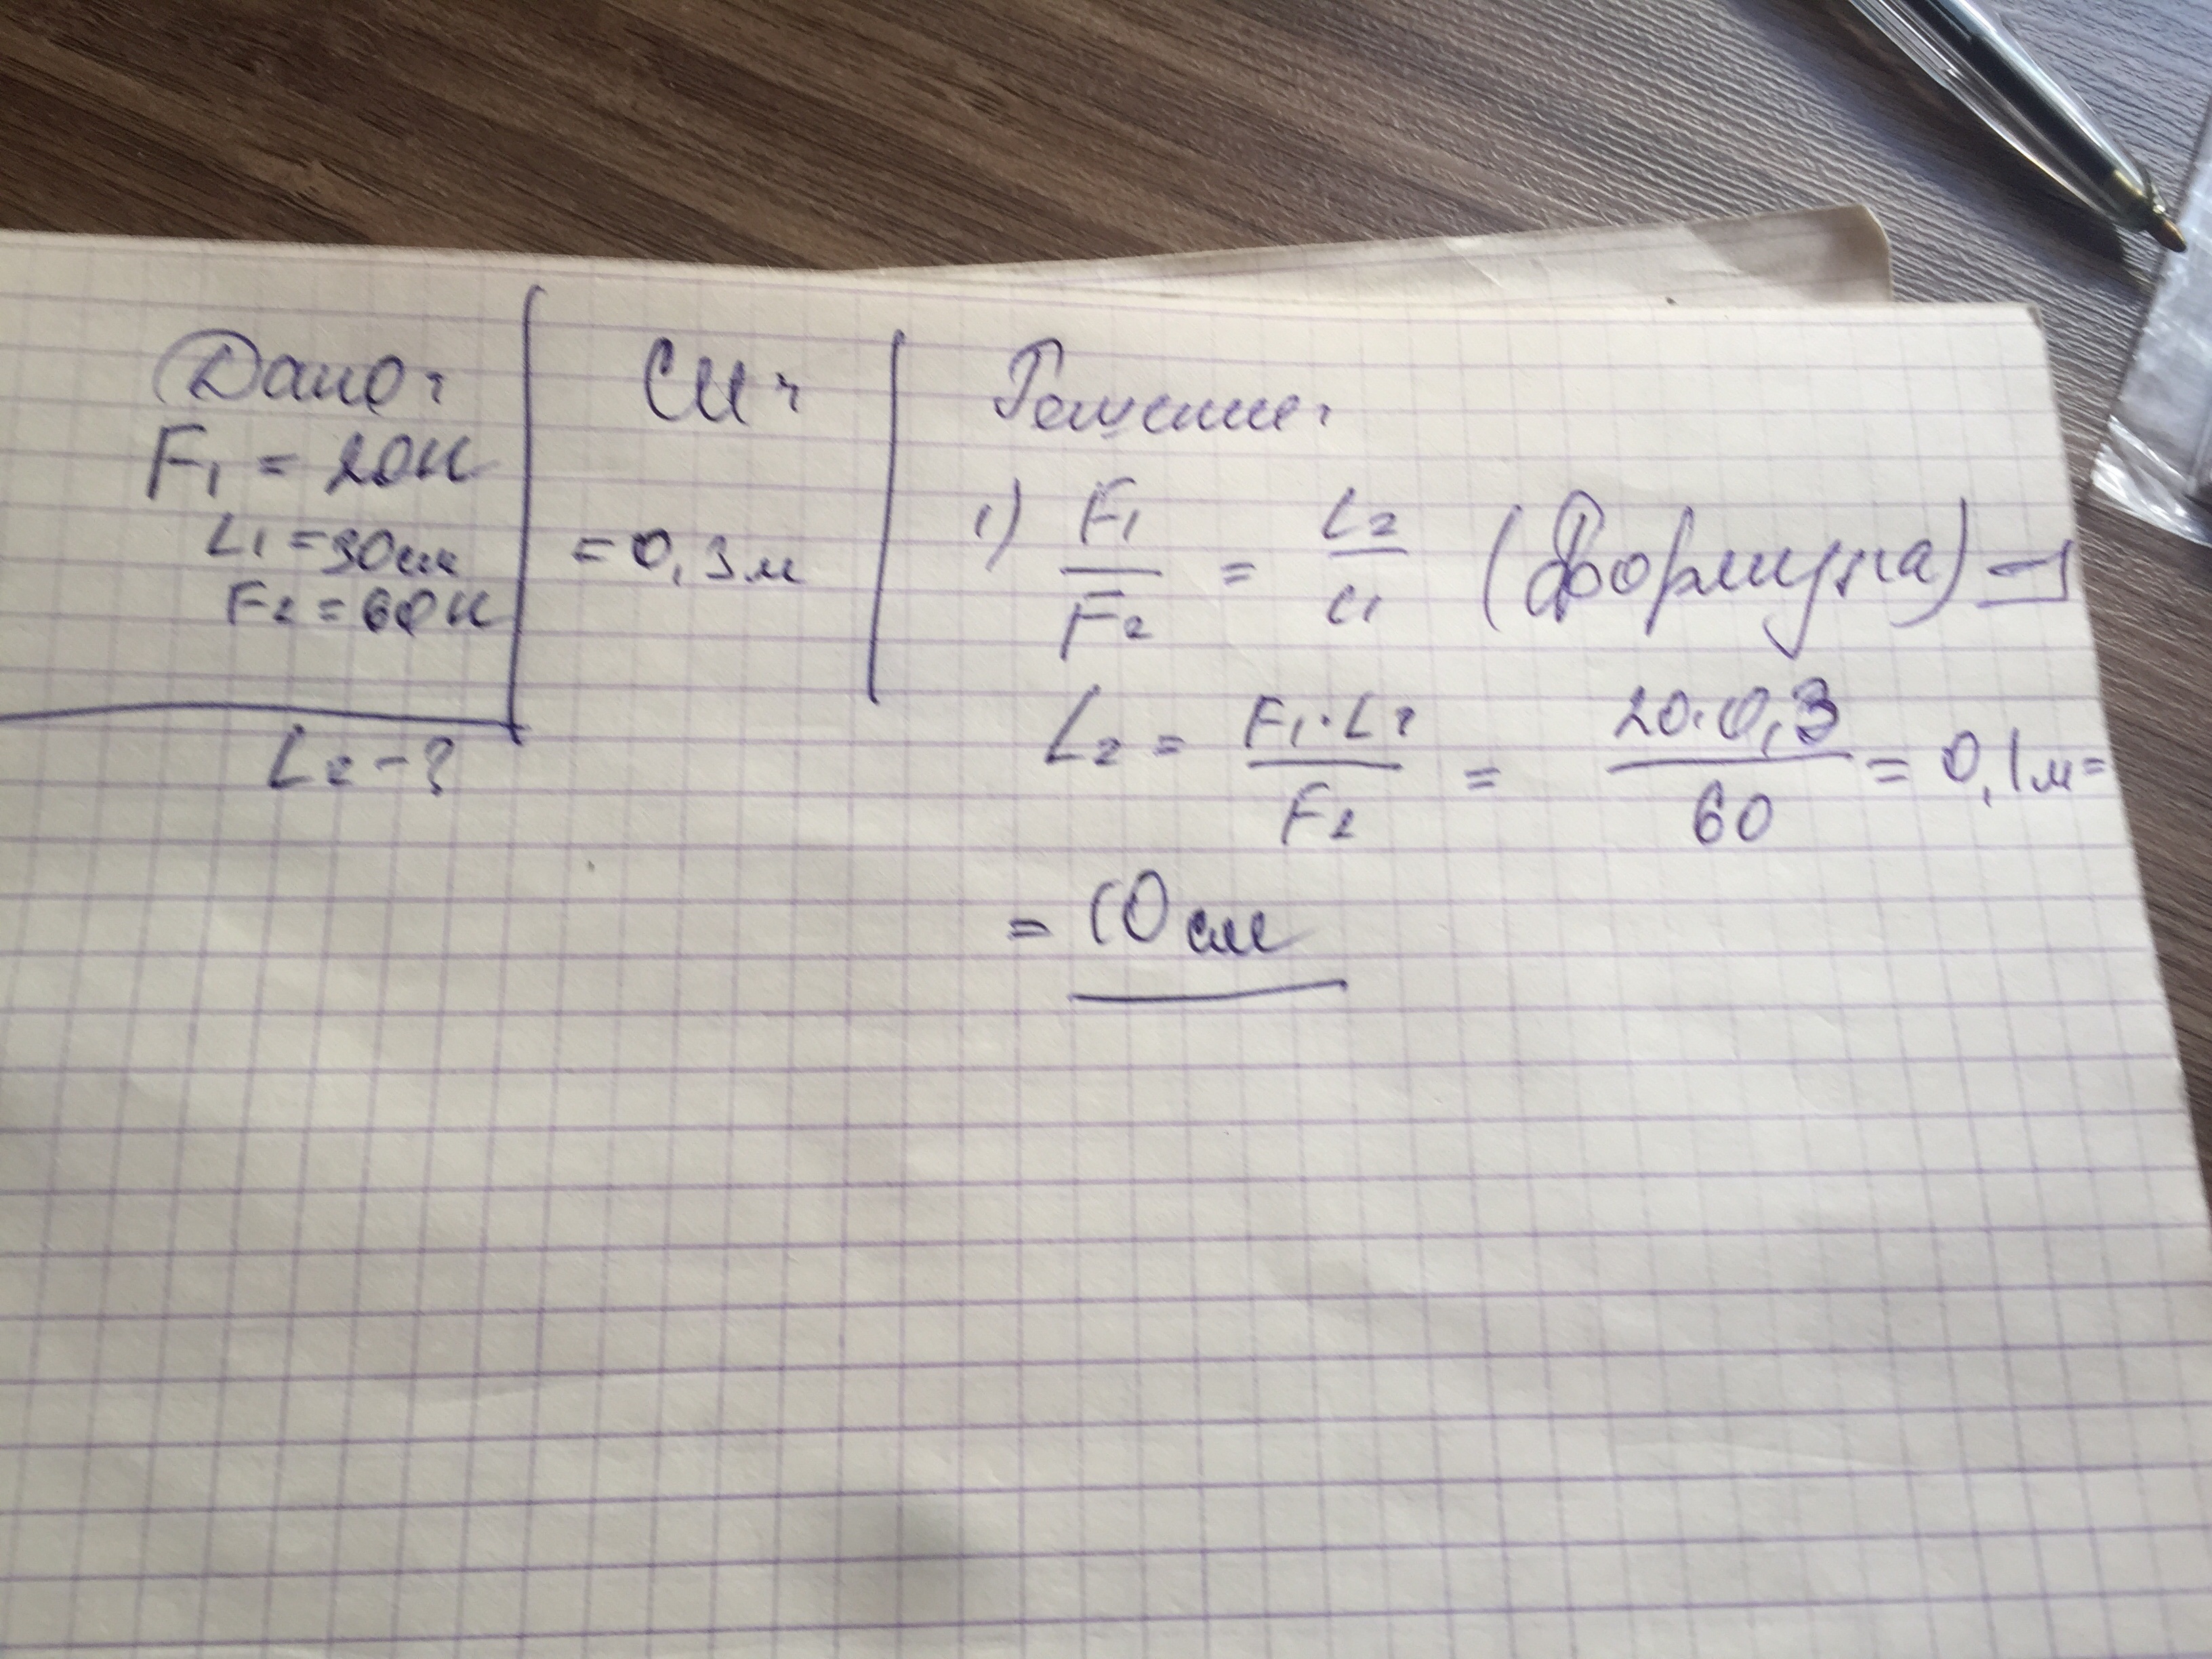 Дано:
F1 = 20Н
L1 = 30см
F2 = 60Н
L2 - ?
СИ:
= 0,3м
Решение:
1) F1/F2 = L2/L1 (Формула) ⇒
L2 = F1·L1/F2 = 20·0,3/60 = 0,1м =
= 10см